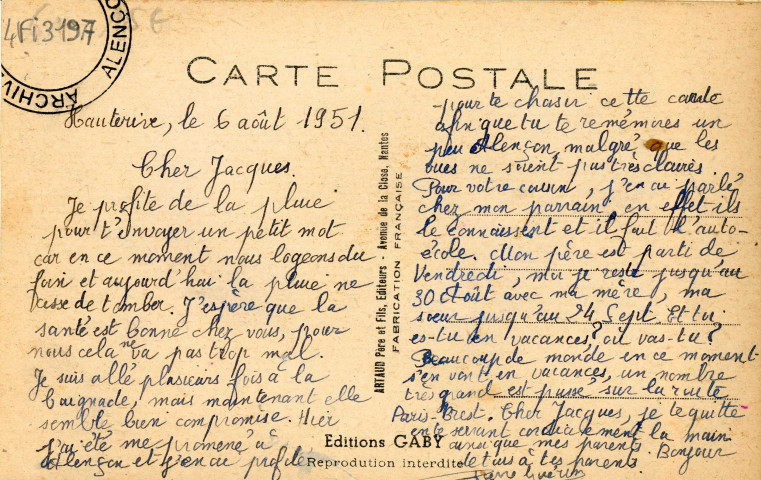 4Fi3197
ARCHIV
ALENÇO
CARTE POSTALE
Hauterive, le 6 août 1951.
Cher Jacques.
Je profite de la pluie
pour t'envoyer un petit mot
car en ce moment nous logeons du
foin et aujourd'hui la pluie ne
cesse de tomber. J'espère que la
santé est bonne chez vous, pour
nous cela ne va pas trop mal.
Je suis allé plusieurs fois à la
baignade, mais maintenant elle
semble bien compromise. Hier
j'ai été me promené à
Alençon et j'en ai profité
ARTAUD Père et Fils, Editeurs - Avenue de la Close, Nantes
FABRICATION FRANÇAISE
pour te choisir cette carte
afin que tu te remémores un
peu Alençon, malgré que les
vues ne soient pas très claires.
Pour votre cousin, j'en ai parlé
chez mon parrain, en effet ils
le connaissent et il fait d'auto-
école. Mon père est parti de
Vendredi, moi je reste jusqu'au
30 Août avec ma mère, ma
sœur jusqu'au 24 Sept. Et toi
es-tu en vacances? où vas-tu?
Beaucoup de monde en ce moment
s'en vont en vacances, un nombre
très grand est passé sur la route
Paris-Brest. Cher Jacques, je te quitte
en te serrant cordialement la main
ainsi que mes parents. Bonjour
de tous à tes parents.
Editions GABY
Reprodution interdite